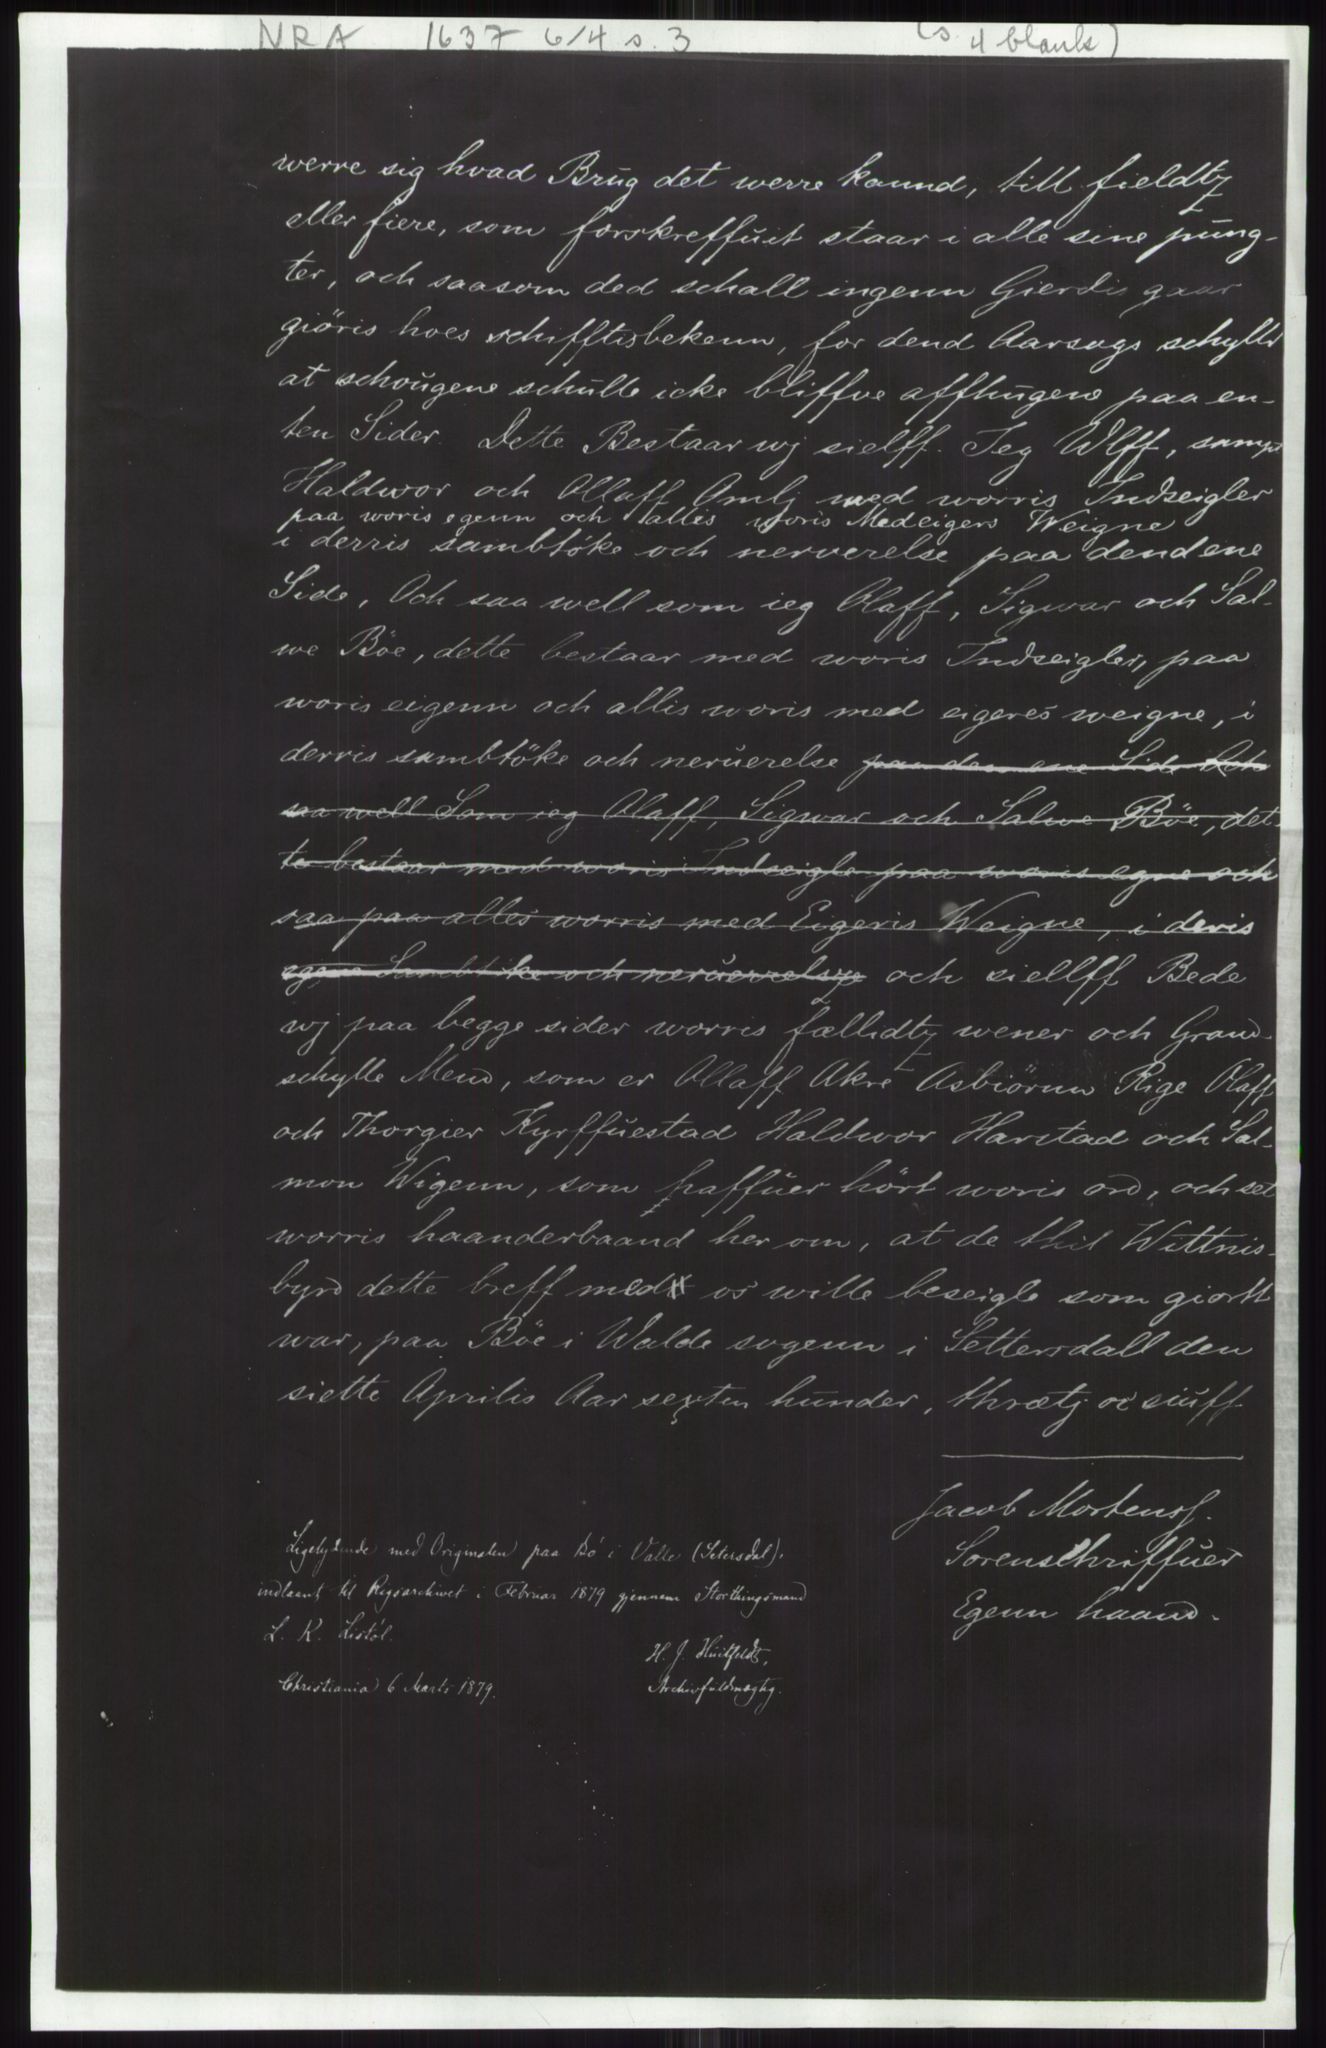 NRA 1637 6/4 s. 3 (s. 4 blank)
werre sig hvad Brug det werre kannd, till fieldtz
eller fiere, som forskreffuit staar i alle sine pung-
ter, och saasom ded schall ingenn Gierdis gaar
giöris hoes schifftisbekenn, for dend Aarsags schylld
at schougene schulle icke bliffve affhugene paa en-
ten Sider. Dette Bestaar wj sielff. Jeg Ulff, sampt
Haldwor och Ollaff Omlj med worris Indzeigler
paa woris egenn och allis woris Medeigers Weigne
i derris sambtöke och nerverelse paa dend ene
Side, Och saa well som ieg Olaff, Sigwar och Sal-
we Böe, dette bestaar med woris Indzeigler, paa
woris eigenn och allis woris med eigeres weigne, i
derris sambtöke och neruerelse paa den ene Side Och
saa well Som ieg Olaff, Sigwar och Salwe Böe, det-
te bestaar med woris Indzeigle paa woris egne och
saa paa alles worris med Eigeris Weigne, i deris
egene Sambtöke och neruerrelse och siellff Bede
wj paa begge sider worris fællidtz wener och Grand-
schylle Mend, som er Ollaff Akre Asbiörnn Rige Olaff
och Thorgier Kyrffuestad Haldwor Harstad och Sal-
mon Wigenn, som haffuer hört woris ord, och set
worris haanderbaand her om, at de thil Wittnis-
byrd dette breff med os wille beseigle som giortt
war, paa Böe i Walde sogenn i Settersdall den
siette Aprilis Aar sexten hunder, thrætj oc siuff.
Jacob Mortenss.
Sorenschriffuer
Egenn haand.
Ligelydende med Originalen paa Bö i Valle (Setersdal),
indlaant til Rigsarchivet i Februar 1879 gjennem Storthingsmand
L. K. Liståöl.
Christiania 6 Marts 1879.
H. J. Huitfeldt,
Archivfuldmægtig.